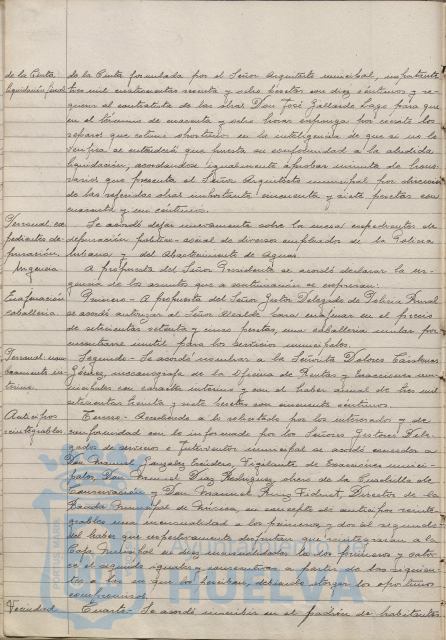 de la Cuenta de la Cuenta formulada por el Señor Arquitecto municipal, importante
liquidación tres mil cuatrocientas sesenta y ocho pesetas con diez céntimos y re-
querir al contratista de las obras Don José Gallardo Lago para que
en el término de cuarenta y ocho horas exponga por escrito los
reparos que estime oportunos en la inteligencia de que si no lo
se entenderá que presta su conformidad a la aludida
liquidación, acordándose igualmente aprobar minuta de hono-
rarios que presenta el Señor Arquitecto municipal por dirección
de las referidas obras importante cincuenta y siete pesetas con
cuarenta y un céntimos.
Personal ex- Se acordó dejar nuevamente sobre la mesa expedientes de
pedientes de- depuración político-social de diversos empleados de la Policía
puración Urbana y del Abastecimiento de Aguas.
Urgencia A propuesta del Señor Presidente se acordó declarar la ur-
gencia de los asuntos que a continuación se expresan:
Enajenación Primero.- A propuesta del Señor Gestor Delegado de Policía Rural
caballería se acordó autorizar al Señor Alcalde para enajenar en el precio
de setecientas setenta y cinco pesetas, una caballería mular por
encontrarse inútil para los servicios municipales.
Personal nom- Segundo.- Se acordó nombrar a la Señorita Dolores
bramiento in- Gómez, mecanógrafa de la Oficina de Rentas y Exacciones mu-
terina nicipales con carácter interino y con el haber anual de tres mil
setecientas treinta y siete pesetas con cincuenta céntimos.
Anticipos Tercero.- Accediendo a lo solicitado por los interesados y de
reintegrables conformidad con lo informado por los Señores Gestores Dele-
gados de servicio e Interventor municipal se acordó conceder a
Don Manuel González Vigilante de Exacciones munici-
pales, Don Manuel Díaz Rodríguez obrero de la Cuadrilla de
Conservación y Don Manuel Ruiz Director de la
Banda Municipal de Música, en concepto de anticipo reinte-
grable una mensualidad a los primeros y dos al segundo
del haber que respectivamente disfrutan que reintegrarán a la
Caja Municipal en diez mensualidades la los primeros y cator-
ce el segundo iguales y consecutivas a partir de los siguien-
tes a los en que lo reciban, debiendo otorgar los oportunos
compromisos.
Vecindad Cuarto.- Se acordó inscribir en el padrón de habitantes
Ayuntamiento de
HUELVA